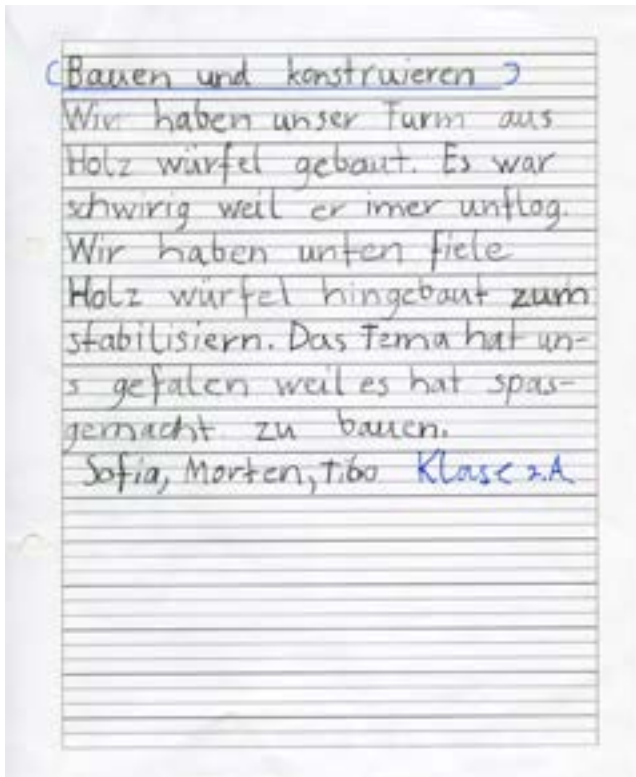 (Bauen und konstruieren)
Wir haben unser Turm aus
Holz würfel gebaut. Es war
schwirig weil er imer umflog.
Wir haben unten fiele
Holz würfel hingebaut zum
stabilisiern. Das Tema hat un-
s gefalen weil es hat spas-
gemacht zu bauen.
Sofia, Morten, Tibo Klase 2.A